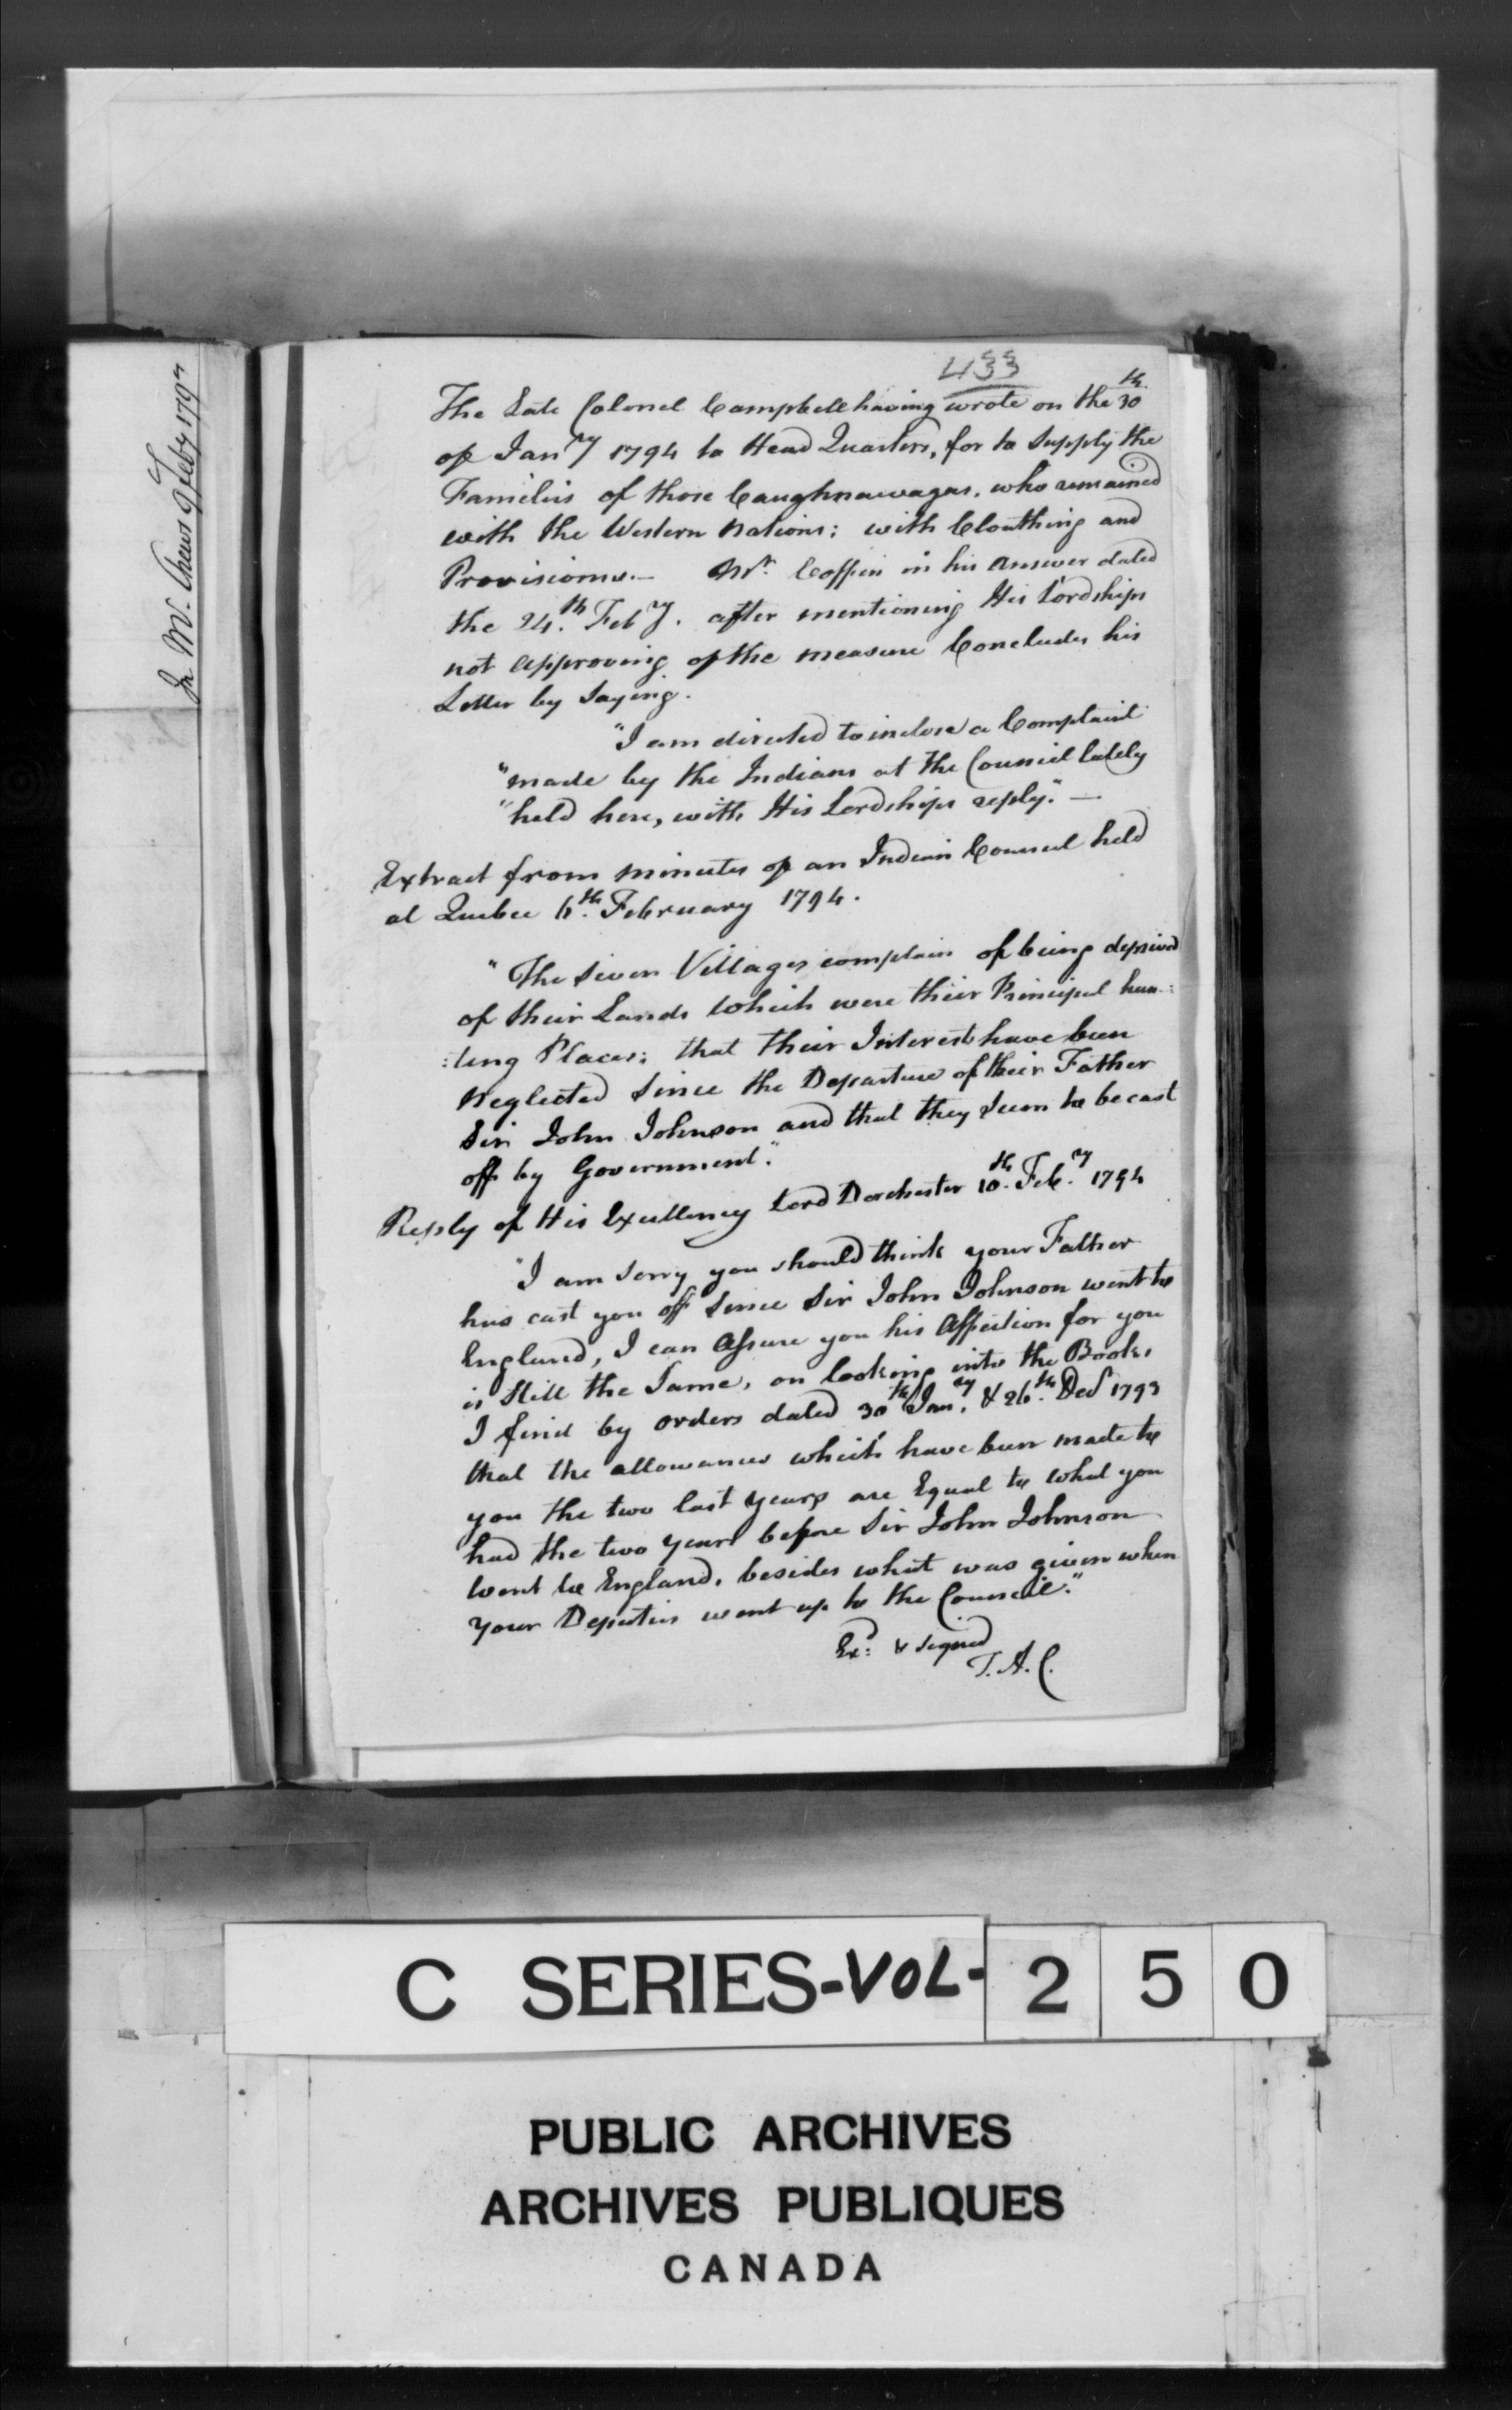 In Mr. Chews 9 feby 1797
433
The Late Colonel Campbell having wrote on the 30th.
of Jany 1794 to Head Quarters, for to Supply the
Families of those Caughnawagas, who remained
with the Western Nations; with Clouthing and
Provisions.— Mr. Coffin in his answer dated
the 24.th Feby. after mentioning His Lordships
not approving of the measure Concludes his
Letter by Saying.
"I am directed to inclose a Complaint
"made by the Indians at the Council lately
"held here, with His Lordships reply."—
Extract from minutes of an Indian Council held
at Quebec 6.th February 1794.
"The Seven Villages complain of being deprived
of their Lands which were their Principal hun:
:ting Places; that their Interest have been
Neglected Since the Departure of their Father
Sir John Johnson and that they Seem to be cast
off by Government."
Reply of His Excellency Lord Dorchester 10.th Feb.y 1794
"I am sorry you should think your Father
has cast you off Since Sir John Johnson went to
England, I can Assure you his Affection for you
is Still the Same, on looking into the Books,
I find by orders dated 30th Jan.y & 26.th Decr 1793
that the allowances which have been made to
you the two last Years are Equal to what you
had the two Years before Sir John Johnson
Went to England, besides what was given when
Your Deputies went up to the Council."
Exd: & signed
T.A.C.
C SERIES-VOL- 2 5 0
PUBLIC ARCHIVES
ARCHIVES PUBLIQUES
CANADA